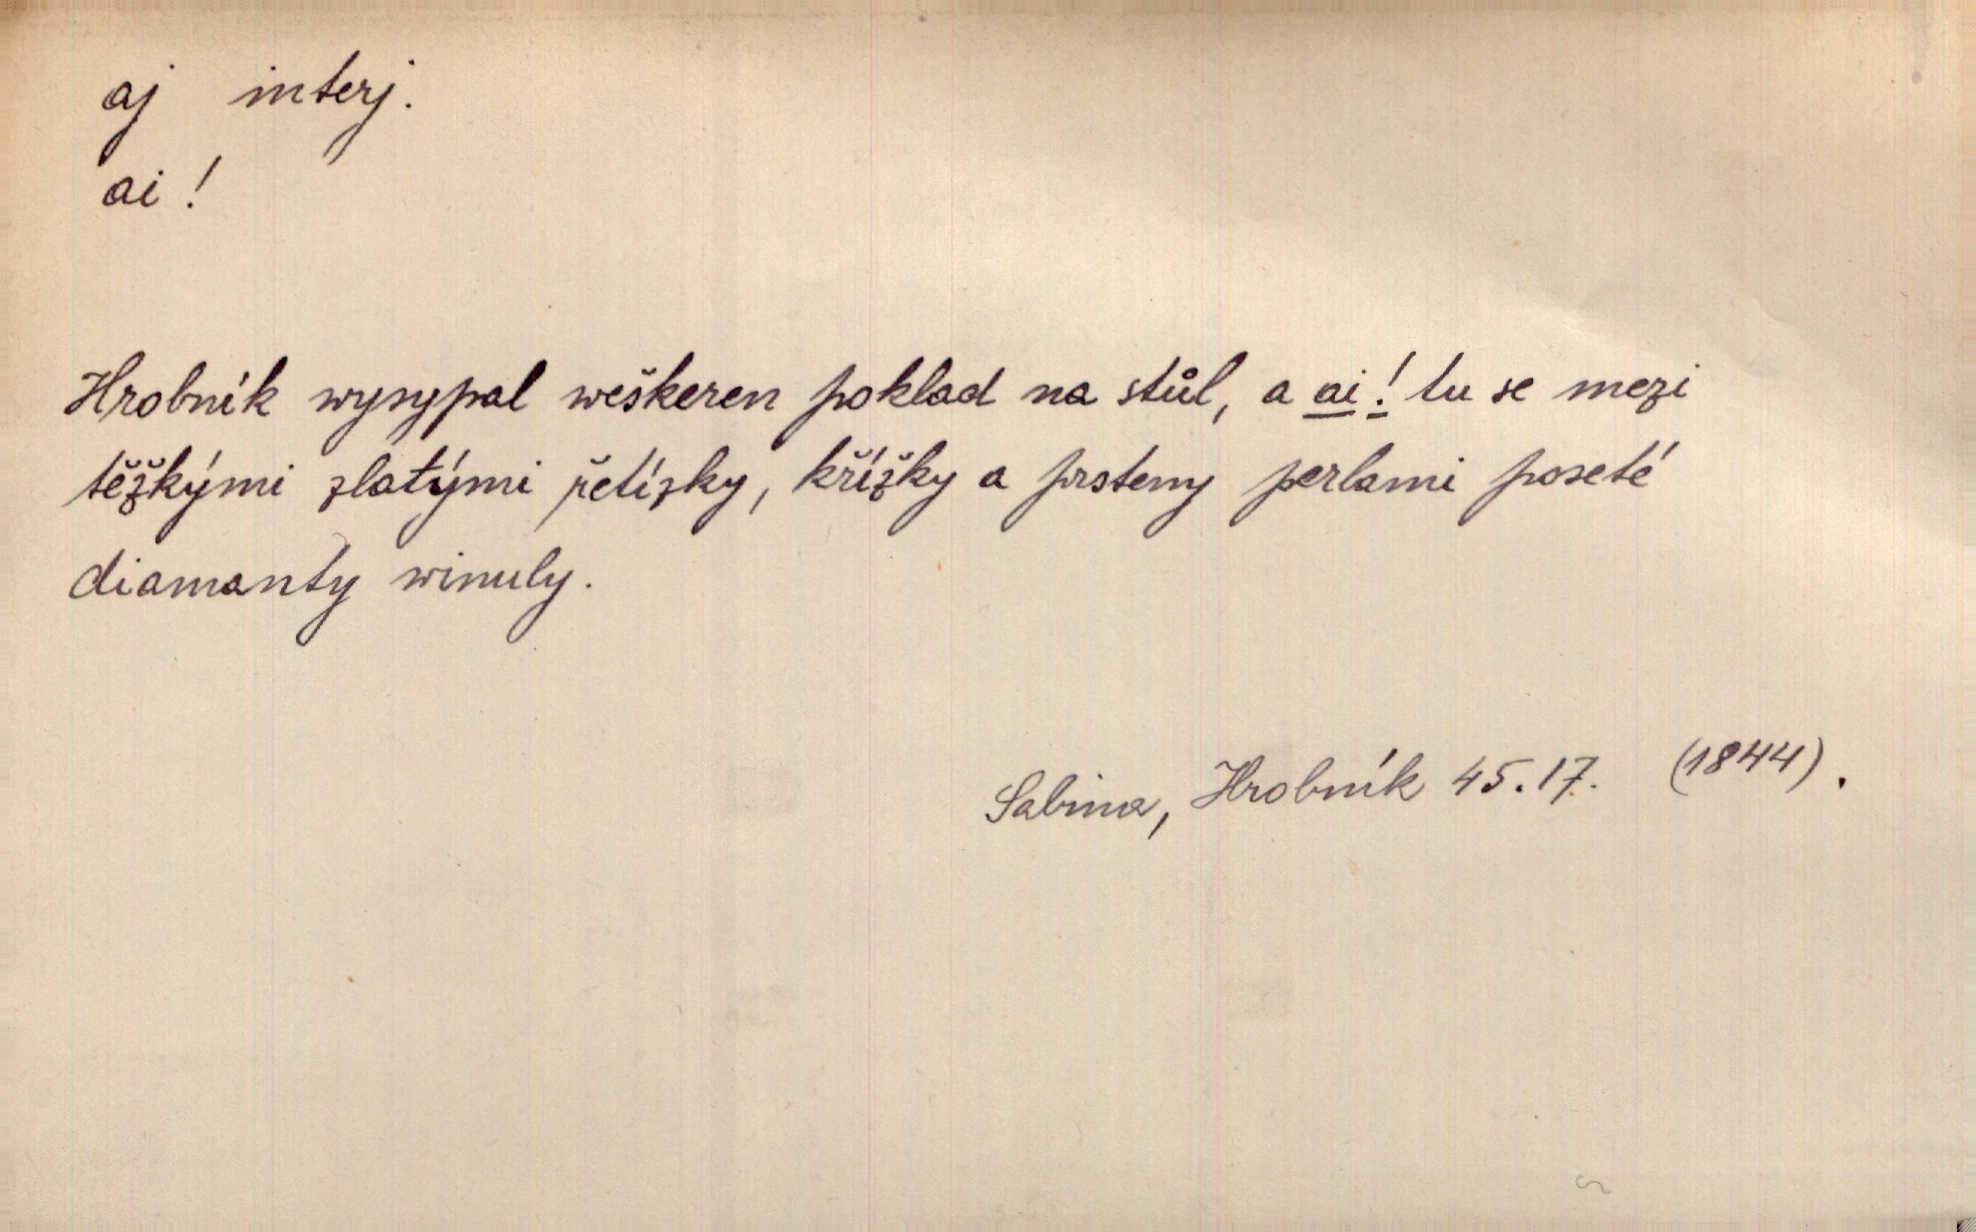 aj interj.
ai!
Hrobník wysypal weškeren poklad na stůl, a ai! tu se mezi
těžkými zlatými řetízky, křížky a prsteny perlami poseté
diamanty winuly.
Sabina, Hrobník 45.17. (1844).